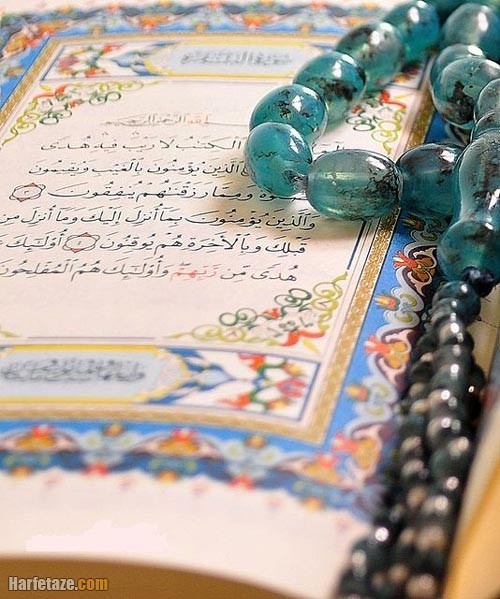 الكتب لا ريب فيه هدى
الذين يؤمنون بالغيب ويقيمون
ومما رزقنهم ينفقون
والذين يؤمنون بما أنزل إليك وما أنزل من
قبلك وبالآخرة هم يوقنون ٤ أولئك
هدى من ربهم وأولئك هم المفلحون
Harfetaze.com